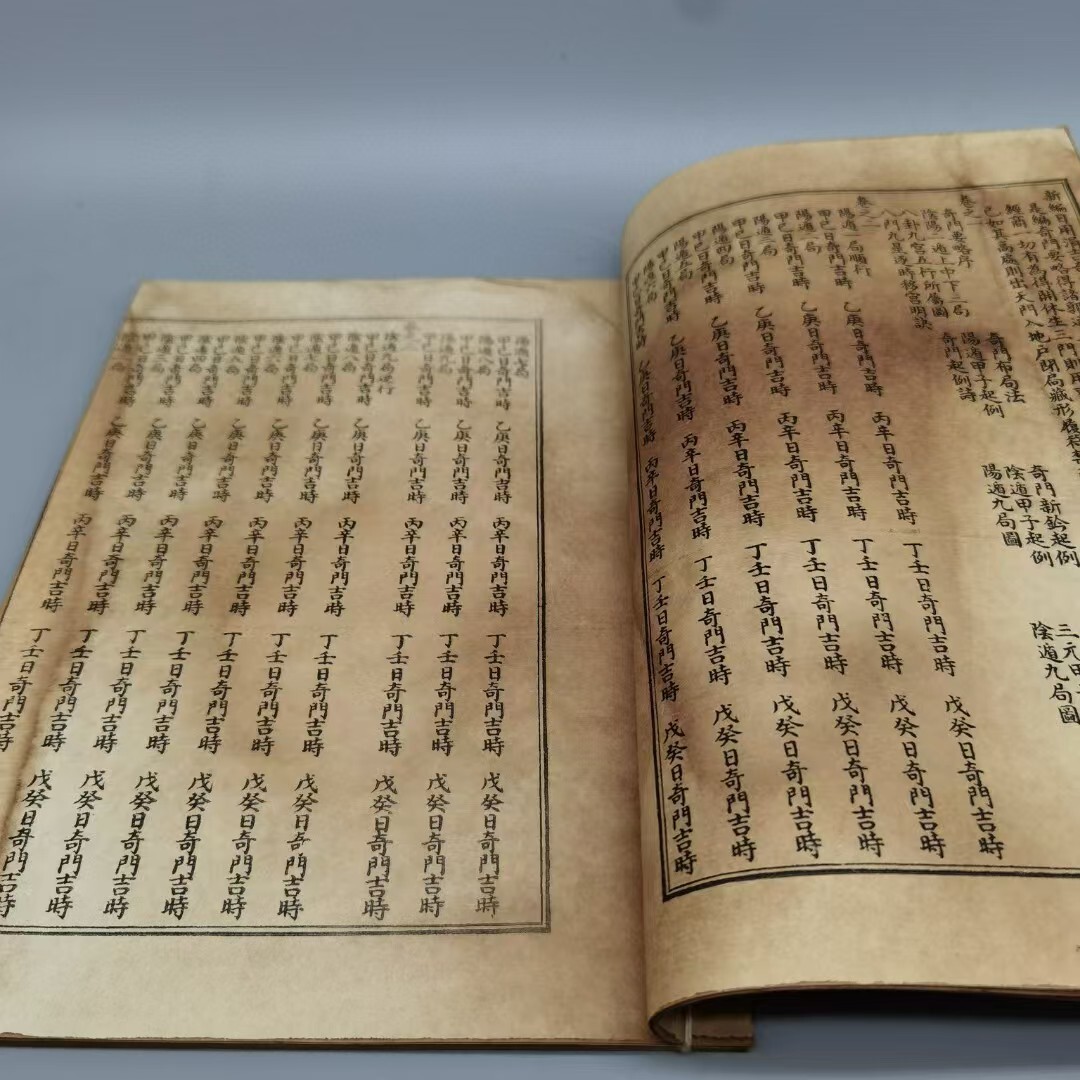 是編奇門要略得諸郭
類商一切有為得開休生三門則用
已如其高處則出天門入地戶閉局藏形
卷之一
奇門要略序 奇門布局法 奇門新鈐起例 三元甲
陰陽二遁上中下三局 陽遁甲子起例 陰遁甲子起例
八卦九宮五行所屬圖 奇門起例詩 陽遁九局圖 陰遁九局圖
八門九星逐時移宮明訣
卷之二
陽遁一局順行
甲己日奇門吉時 乙庚日奇門吉時 丙辛日奇門吉時 丁壬日奇門吉時 戊癸日奇門吉時
陽遁二局
甲己日奇門吉時 乙庚日奇門吉時 丙辛日奇門吉時 丁壬日奇門吉時 戊癸日奇門吉時
陽遁三局
甲己日奇門吉時 乙庚日奇門吉時 丙辛日奇門吉時 丁壬日奇門吉時 戊癸日奇門吉時
陽遁四局
甲己日奇門吉時 乙庚日奇門吉時 丙辛日奇門吉時 丁壬日奇門吉時 戊癸日奇門吉時
陽遁五局
甲己日奇門吉時 乙庚日奇門吉時 丙辛日奇門吉時 丁壬日奇門吉時 戊癸日奇門吉時
陽遁六局
甲己日奇門吉時 乙庚日奇門吉時 丙辛日奇門吉時 丁壬日奇門吉時 戊癸日奇門吉時
陽遁七局
甲己日奇門吉時 乙庚日奇門吉時 丙辛日奇門吉時 丁壬日奇門吉時 戊癸日奇門吉時
陽遁八局
甲己日奇門吉時 乙庚日奇門吉時 丙辛日奇門吉時 丁壬日奇門吉時 戊癸日奇門吉時
陽遁九局
甲己日奇門吉時 乙庚日奇門吉時 丙辛日奇門吉時 丁壬日奇門吉時 戊癸日奇門吉時
卷之三
陰遁九局逆行
甲己日奇門吉時 乙庚日奇門吉時 丙辛日奇門吉時 丁壬日奇門吉時 戊癸日奇門吉時
陰遁八局
甲己日奇門吉時 乙庚日奇門吉時 丙辛日奇門吉時 丁壬日奇門吉時 戊癸日奇門吉時
陰遁七局
甲己日奇門吉時 乙庚日奇門吉時 丙辛日奇門吉時 丁壬日奇門吉時 戊癸日奇門吉時
陰遁六局
甲己日奇門吉時 乙庚日奇門吉時 丙辛日奇門吉時 丁壬日奇門吉時 戊癸日奇門吉時
陰遁五局
甲己日奇門吉時 乙庚日奇門吉時 丙辛日奇門吉時 丁壬日奇門吉時 戊癸日奇門吉時
陰遁四局
甲己日奇門吉時 乙庚日奇門吉時 丙辛日奇門吉時 丁壬日奇門吉時 戊癸日奇門吉時